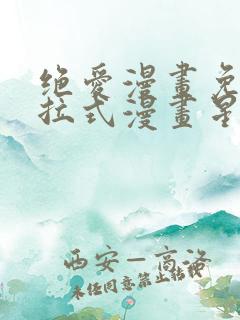 绝爱漫畫免
拉式漫畫星
西安—高洛
未经同意禁止转载